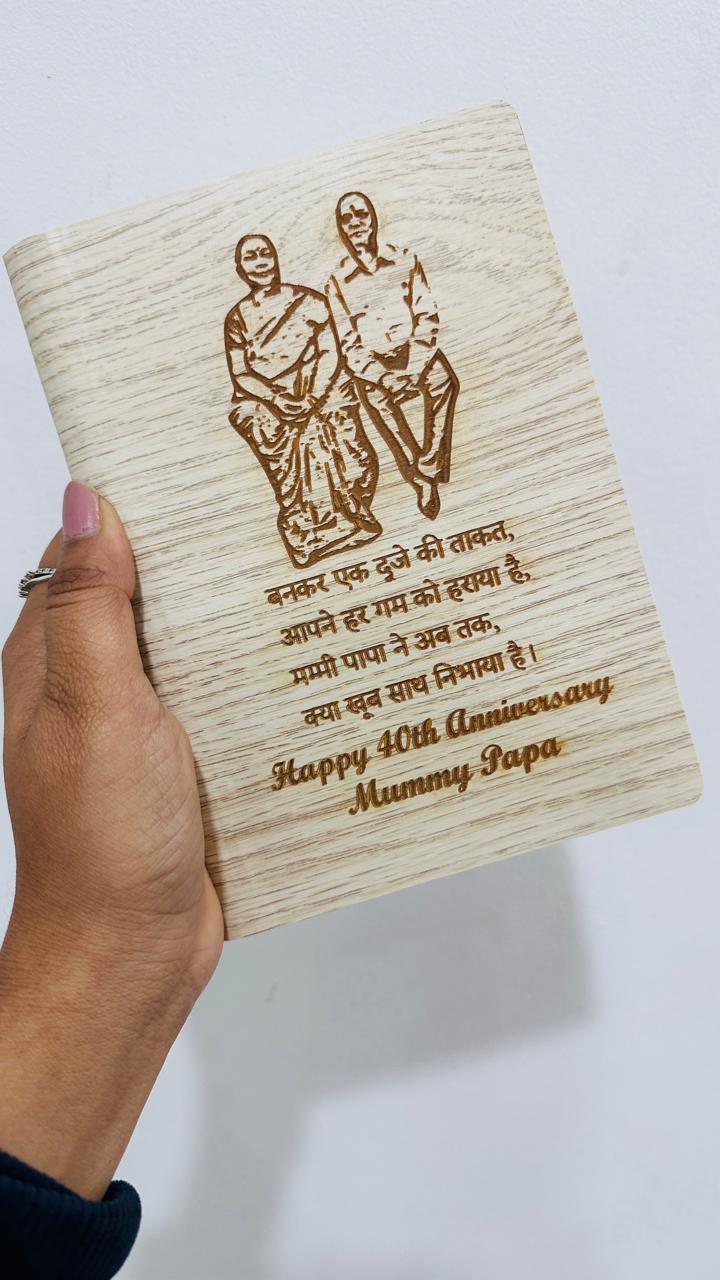 बनकर एक दूजे की ताकत,
आपने हर गम को हराया है,
मम्मी पापा ने अब तक,
क्या खूब साथ निभाया है।
Happy 40th Anniversary
Mummy Papa